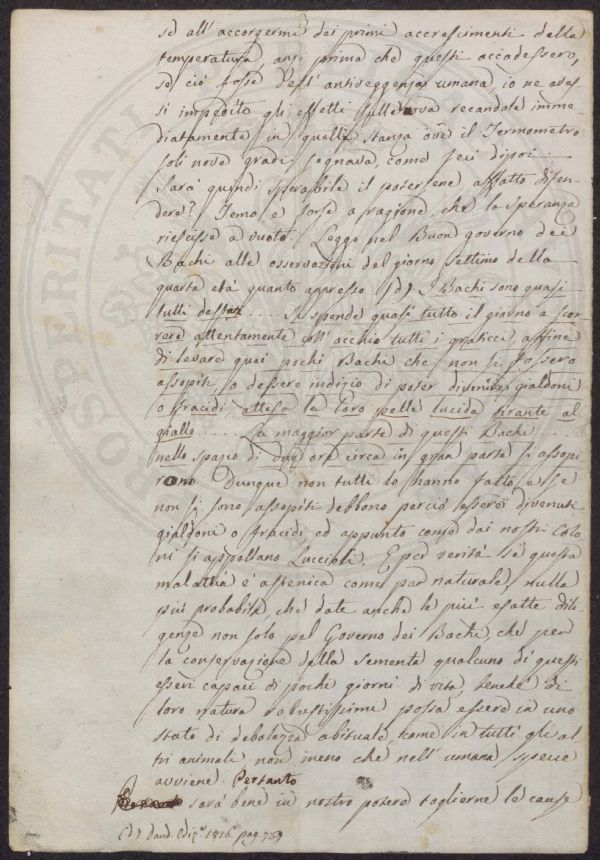 se all'accorgermi dei primi accrescimenti della
temperatura, anzi prima che questi accadessero,
se ciò fosse dell'antiveggenza umana, io ne aves
si impedito gli effetti sulle uova recandole imme
diatamente in quella stanza ove il Termometro
soli nove gradi segnava, come feci dipoi
Sarà quindi sperabile il potersene affatto difen
dere? Temo e forse a ragione, che la speranza
riescisse a vuoto. Leggo nel Buon governo dei
Bachi alle osservazioni del giorno settimo della
quarta età quanto appresso (d) I Bachi sono quasi
tutti destati ..... Si spende quasi tutto il giorno a scor
rere attentamente coll'occhio tutti i graticci, affine
di levare quei pochi Bachi che non si fossero
assopiti, o dessero indizio di poter divenire gialdoni
o fracidi, attesa la loro pelle lucida tirante al
giallo ..... La maggior parte di questi Bachi ....
nello spazio di due ore circa in gran parte si assopi
rono. Dunque non tutti lo hanno fatto, e se
non si sono assopiti debbono perciò essere divenuti
gialdoni o fracidi, ed appunto come dai nostri Colo
ni si appellano Luccioli. E per verità se questa
malattia è astenica come par naturale, nulla
più probabile che date anche le più esatte dili
genze non solo pel Governo dei Bachi, che per
la conservazione della sementa qualcuno di questi
esseri capaci di pochi giorni di vita, benchè di
loro natura robustissimi possa essere in uno
stato di debolezza abituale, come in tutti gli al
tri animali, non meno che nell'umana specie
avviene. Pertanto
sarà bene in nostro potere toglierne le cause
(d) Dand. Ediz.e 1816 pag. 759